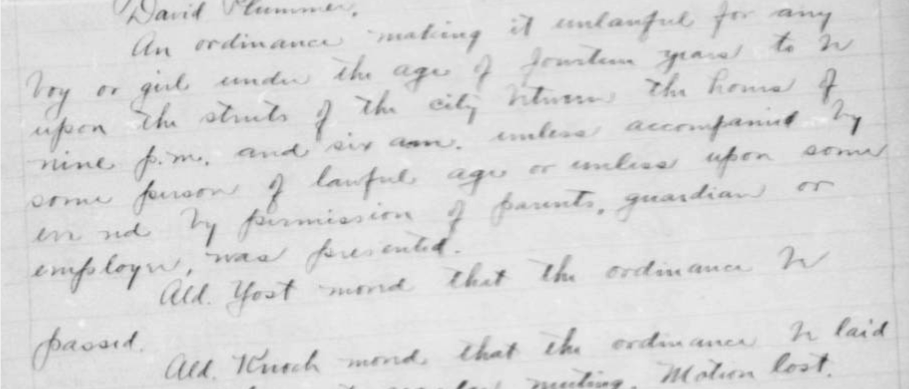 David Plummer.
An ordinance making it unlawful for any
boy or girl under the age of fourteen years to be
upon the streets of the city between the hours of
nine p.m. and six a.m. unless accompanied by
some person of lawful age or unless upon some
errand by permission of parents, guardian or
employer, was presented.
Ald. Yost moved that the ordinance be
passed.
Ald. Knoch moved that the ordinance be laid
meeting. Motion lost.